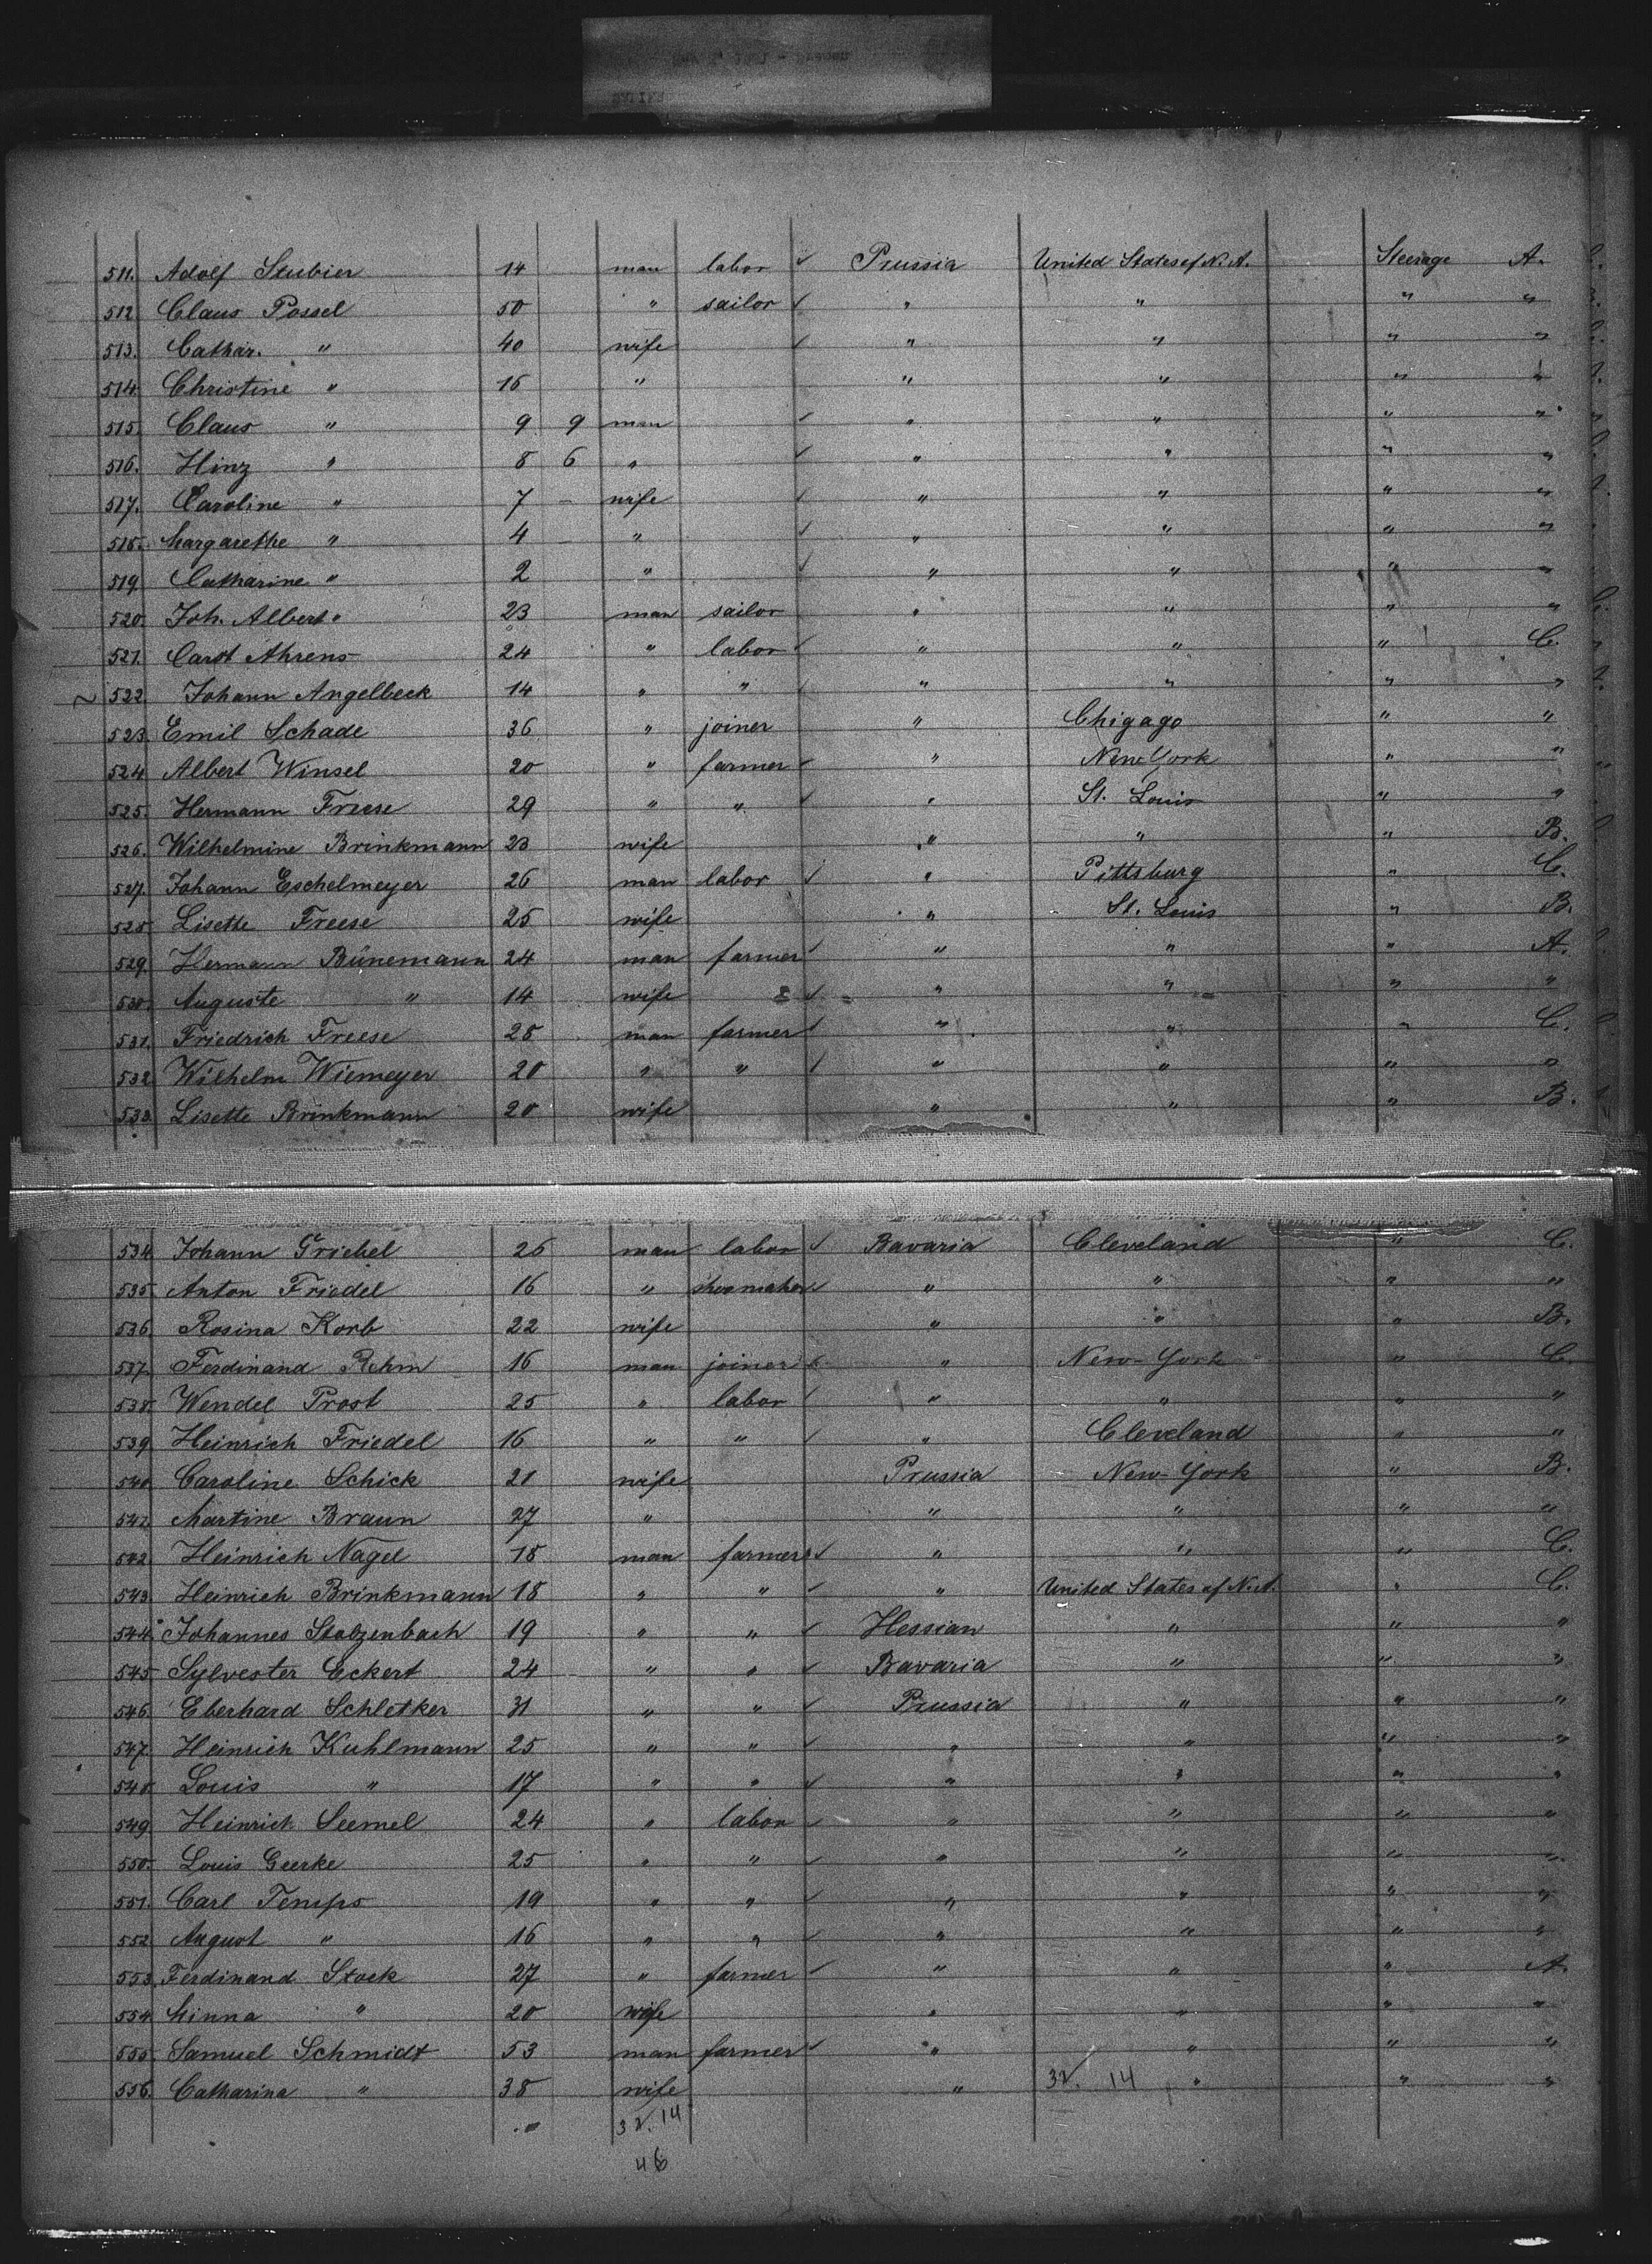 511. Adolf Stubier 14 man labor ✓ Prussia United States of N. A. Steerage A.
512 Claus Possel 50 " sailor ✓ " " " "
513. Cathar. " 40 wife ✓ " " " "
514 Christine " 16 " " " " "
515. Claus " 9 9 man ✓ " " " "
516. Hinz " 8 6 " ✓ " " " "
517. Caroline " 7 – wife ✓ " " " "
518. Margarethe " 4 – " ✓ " " " "
519. Catharine " 2 " ✓ " " " "
520. Joh. Albert " 23 man sailor " " " "
521. Carst Ahrens 24 " labor ✓ " " " C.
522. Johann Angelbeck 14 " " ✓ " " " "
523. Emil Schade 36 " joiner " Chigago " "
524 Albert Winsel 20 " farmer ✓ " New York " "
525. Hermann Friese 29 " " ✓ " St. Louis " "
526. Wilhelmine Brinkmann 23 wife " " " B.
527. Johann Eschelmeyer 26 man labor ✓ " Pittsburg " C.
528 Lisette Freese 25 wife " St. Louis " B.
529. Hermann Bünemann 24 man farmer ✓ " " " A.
530. Auguste " 14 wife ✓ " " " "
531. Friedrich Freese 28 man farmer ✓ " " " C.
532 Wilhelm Wiemeyer 20 " " ✓ " " " "
533. Lisette Brinkmann 20 wife " " " B.
534 Johann Griebel 26 man labor ✓ Bavaria Cleveland " C.
535. Anton Friedel 16 " shoemaker ✓ " " " "
536. Rosina Korb 22 wife " " " B.
537. Ferdinand Rehm 16 man joiner ✓ " New-York " C.
538. Wendel Prost 25 " labor ✓ " " " "
539. Heinrich Friedel 16 " " ✓ " Cleveland " "
540 Caroline Schick 21 wife Prussia New-York " B.
541. Martine Braun 27 " " " " "
542. Heinrich Nagel 18 man farmer ✓ " " " C.
543. Heinrich Brinkmann 18 " " ✓ " United States of N. A. " C.
544. Johannes Stolzenbach 19 " " ✓ Hessian " " "
545 Sylvester Eckert 24 " " ✓ Bavaria " " "
546. Eberhard Schletker 31 " " ✓ Prussia " " "
547. Heinrich Kuhlmann 25 " " ✓ " " " "
548. Louis " 17 " " ✓ " " " "
549 Heinrich Seemel 24 " labor ✓ " " " "
550. Louis Geerke 25 " " ✓ " " " "
551. Carl Temps 19 " " ✓ " " " "
552 August " 16 " " ✓ " " " "
553. Ferdinand Stock 27 " farmer ✓ " " " A.
554 Minna " 20 wife " " " "
555. Samuel Schmidt 53 man farmer ✓ " " " "
556. Catharina " 38 wife " 32. 14 " " "
32. 14
46